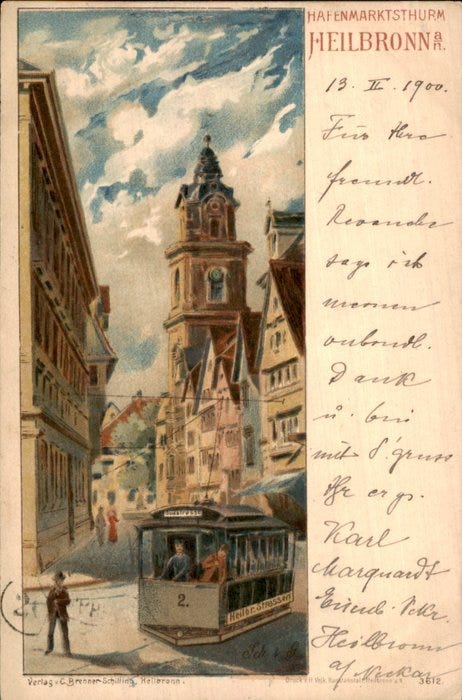 HAFENMARKTSTHURM
HEILBRONN a/n.
13. II. 1900.
Für Ihre
freundl.
Revanche
sage ich
meinen
verbindl.
Dank
u. bin
mit S'gruss
Ihr erg.
Karl
Marquardt
Eisenb. Sekr.
Heilbronn
a/ Neckar
2.
Heilbr. Strassen
Sch
Verlag v. C. Brenner-Schilling, Heilbronn.
Druck v. H. Volk, Kunstanstalt, Heilbronn a/N.
3612.